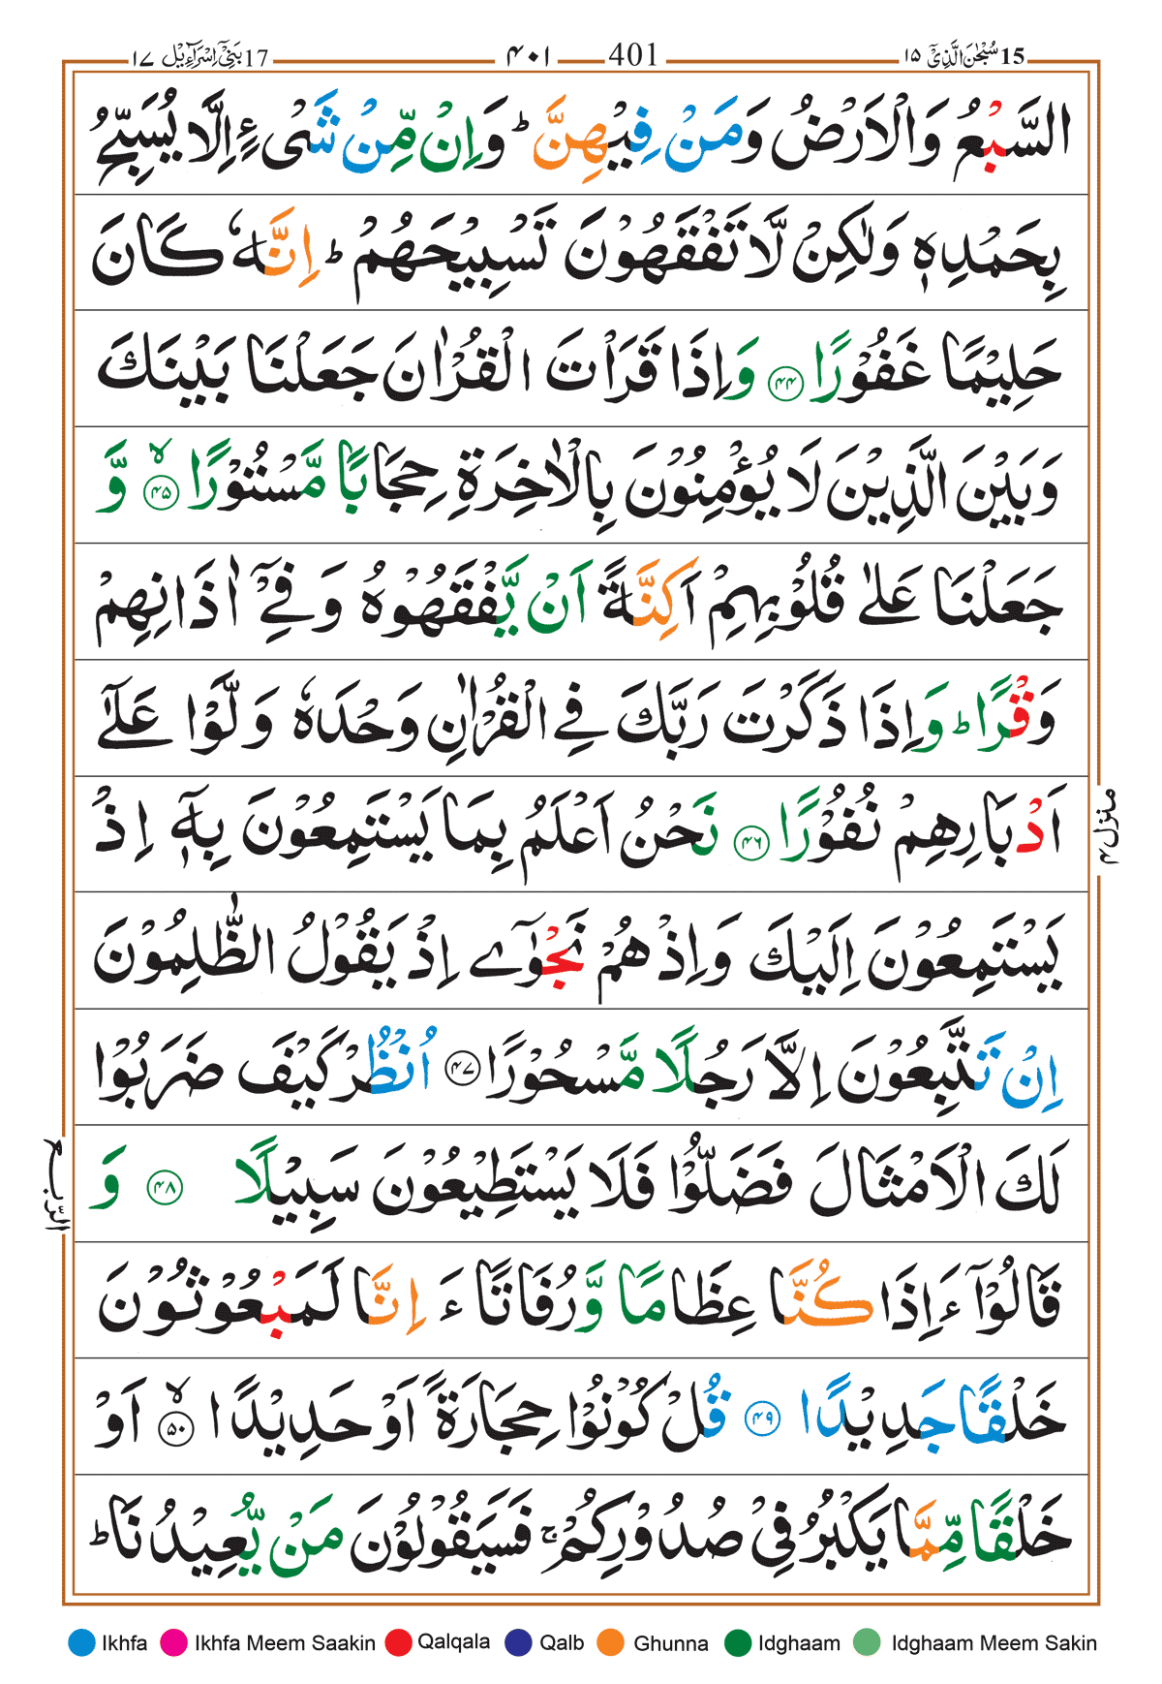 15 سُبْحٰنَ الَّذِیْۤ ۱۵ 401 ۴۰۱ 17 بَنِیْۤ اِسْرَآءِیْل ۱۷
السَّبْعُ وَالْاَرْضُ وَمَنْ فِیْهِنَّ ؕ وَاِنْ مِّنْ شَیْءٍ اِلَّا یُسَبِّحُ
بِحَمْدِهٖ وَلٰكِنْ لَّا تَفْقَهُوْنَ تَسْبِیْحَهُمْ ؕ اِنَّهٗ كَانَ
حَلِیْمًا غَفُوْرًا ﴿۴۴﴾ وَاِذَا قَرَاْتَ الْقُرْاٰنَ جَعَلْنَا بَیْنَكَ
وَبَیْنَ الَّذِیْنَ لَا یُؤْمِنُوْنَ بِالْاٰخِرَةِ حِجَابًا مَّسْتُوْرًا ﴿۴۵﴾ۙ وَّ
جَعَلْنَا عَلٰی قُلُوْبِهِمْ اَكِنَّةً اَنْ یَّفْقَهُوْهُ وَفِیْۤ اٰذَانِهِمْ
وَقْرًا ؕ وَاِذَا ذَكَرْتَ رَبَّكَ فِی الْقُرْاٰنِ وَحْدَهٗ وَلَّوْا عَلٰۤی
اَدْبَارِهِمْ نُفُوْرًا ﴿۴۶﴾ نَحْنُ اَعْلَمُ بِمَا یَسْتَمِعُوْنَ بِهٖۤ اِذْ
یَسْتَمِعُوْنَ اِلَیْكَ وَاِذْ هُمْ نَجْوٰۤی اِذْ یَقُوْلُ الظّٰلِمُوْنَ
اِنْ تَتَّبِعُوْنَ اِلَّا رَجُلًا مَّسْحُوْرًا ﴿۴۷﴾ اُنْظُرْ كَیْفَ ضَرَبُوْا
لَكَ الْاَمْثَالَ فَضَلُّوْا فَلَا یَسْتَطِیْعُوْنَ سَبِیْلًا ﴿۴۸﴾ وَ
قَالُوْۤا ءَاِذَا كُنَّا عِظَامًا وَّرُفَاتًا ءَاِنَّا لَمَبْعُوْثُوْنَ
خَلْقًا جَدِیْدًا ﴿۴۹﴾ قُلْ كُوْنُوْا حِجَارَةً اَوْ حَدِیْدًا ﴿۵۰﴾ۙ اَوْ
خَلْقًا مِّمَّا یَكْبُرُ فِیْ صُدُوْرِكُمْ ۚ فَسَیَقُوْلُوْنَ مَنْ یُّعِیْدُنَا ؕ
منزل ۴
الرّبع
Ikhfa Ikhfa Meem Saakin Qalqala Qalb Ghunna Idghaam Idghaam Meem Sakin